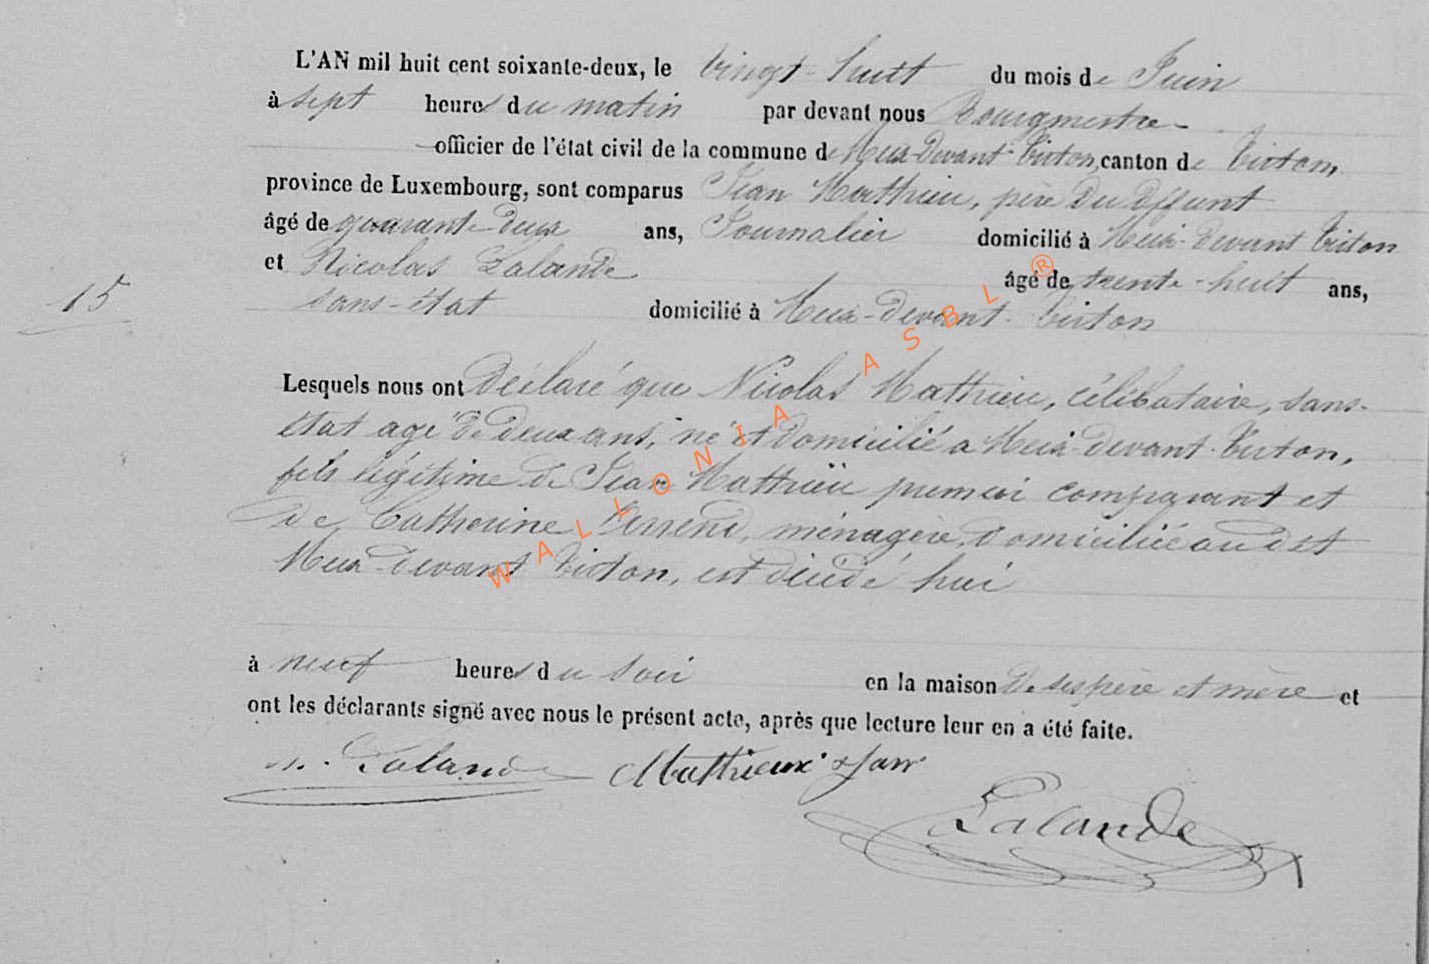 L'AN mil huit cent soixante-deux, le vingt-huit du mois de Juin
à sept heures du matin par devant nous Bourgmestre
officier de l'état civil de la commune de Meix-Devant-Virton, canton de Virton,
province de Luxembourg, sont comparus Jean Mathieu, père du Défunt
âgé de quarante-deux ans, Journalier domicilié à Meix-devant Virton
et Nicolas Lalande âgé de trente-huit ans,
15
sans-état domicilié à Meix-devant-Virton
Lesquels nous ont Déclaré que Nicolas Mathieu, célibataire, sans-
état agé de deux ans, né et domicilié a Meix-devant-Virton,
fils légitime de Jean Mathieu premier comparant et
de Catherine ménagère, domiciliée audit
Meix-devant Virton, est décédé hier
à neuf heures du soir en la maison de ses père et mère et
ont les déclarants signé avec nous le présent acte, après que lecture leur en a été faite.
n. Lalande Mathieux Jean
Lalande
WALLONIA ASBL ®